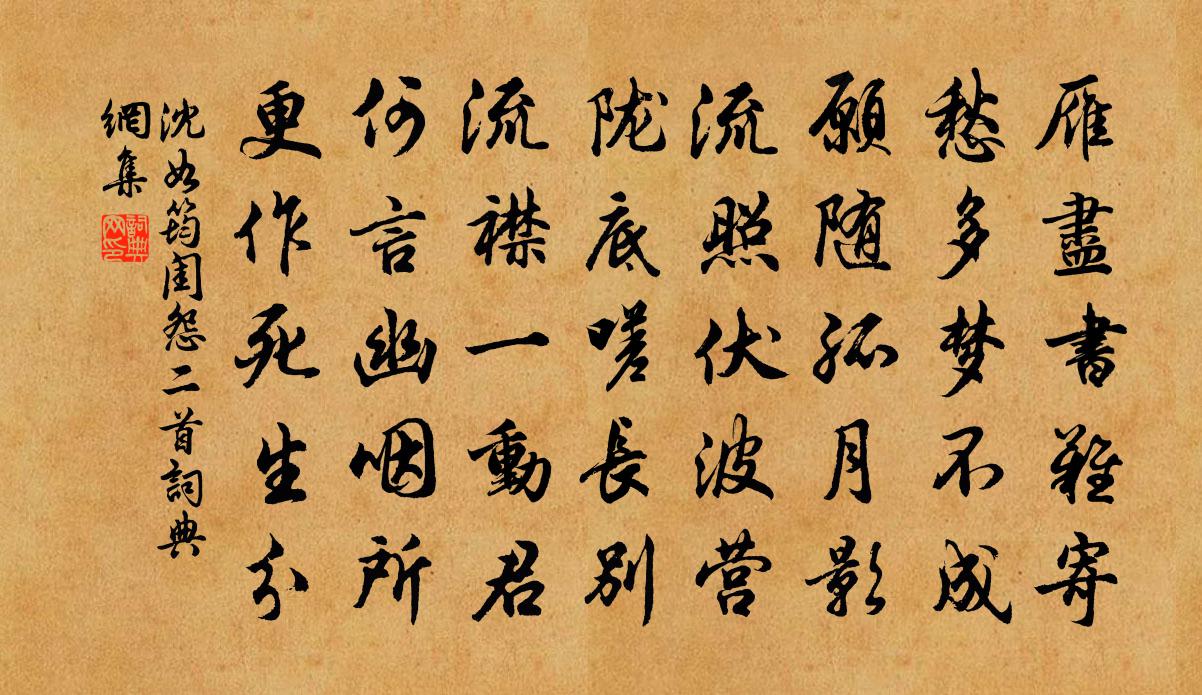 雁盡書難寄
愁多梦不成
願随孤月影
流照伏波营
陇底嗟長别
流襟一動君
何言幽咽所
更作死生分
沈如筠闺怨二首詞典
網集
詞典网印